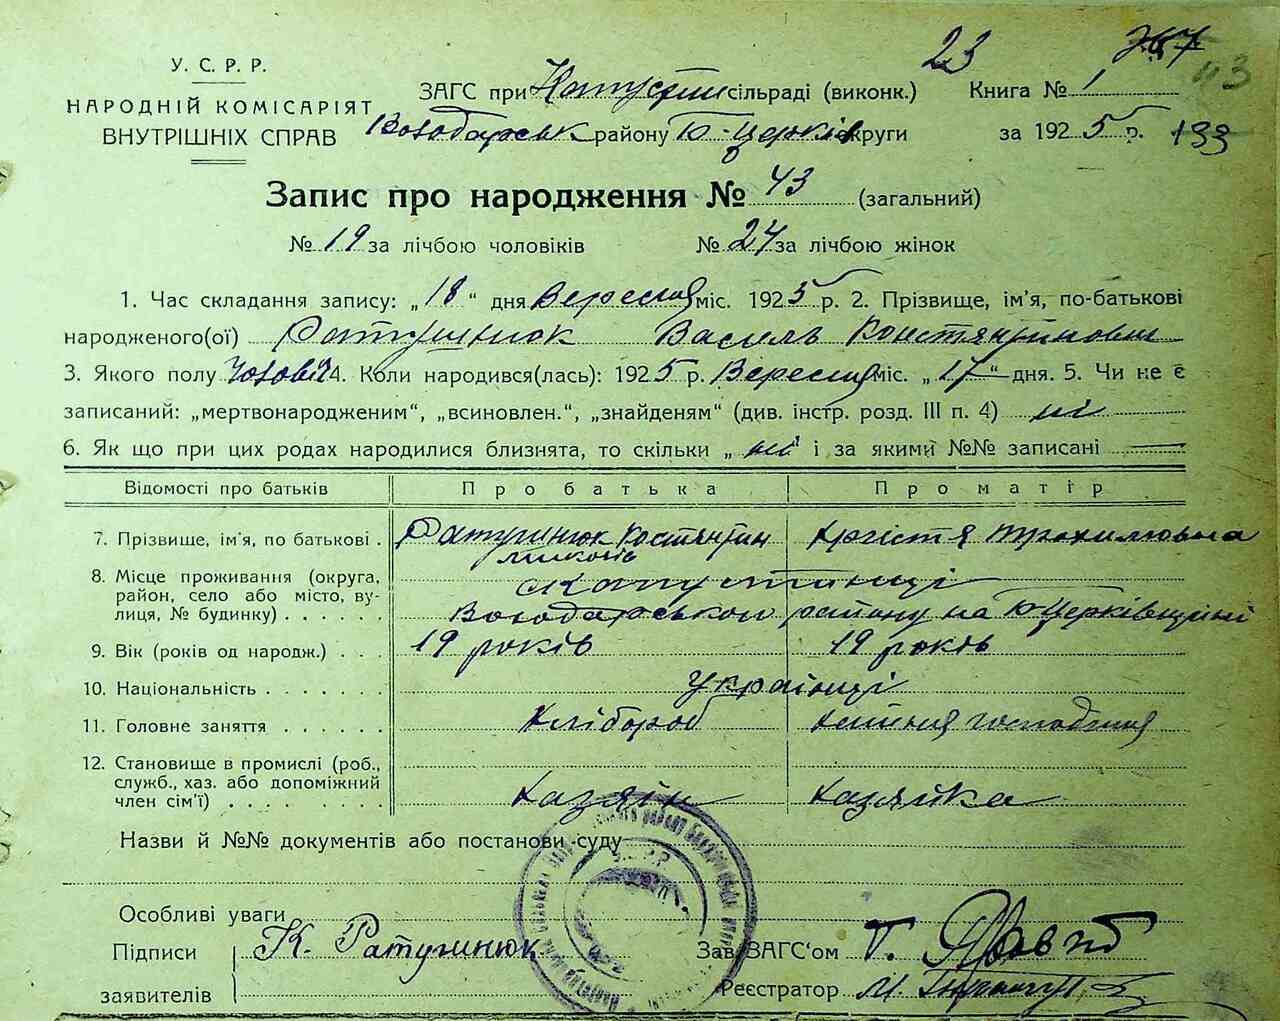 23
У. С. Р. Р.
НАРОДНІЙ КОМІСАРІЯТ
ВНУТРІШНІХ СПРАВ
ЗАГС при сільраді (виконк.) Книга № 1
району Б-Церків округи за 1925 р. 133
Запис про народження № 43 (загальний)
№ 19 за лічбою чоловіків № 24 за лічбою жінок
1. Час складання запису: „18“ дня Вересня міс. 1925 р. 2. Прізвище, ім'я, по-батькові
народженого(ої) Ратушнюк Василь Костянтинович
3. Якого полу 4. Коли народився(лась): 1925 р. Вересня міс. „17“ дня. 5. Чи не є
записаний: „мертвонародженим“, „всиновлен.“, „знайденям“ (див. інстр. розд. III п. 4) ні
6. Як що при цих родах народилися близнята, то скільки „ ні “ і за якими №№ записані
Відомості про батьків Про батька Про матір
7. Прізвище, ім'я, по батькові . Ратушнюк Костянтин
8. Місце проживання (округа, район, село або місто, вулиця, № будинку) . . . . . . Капустинці
району на Б-Церківщині
9. Вік (років од народж.) . . . 19 років 19 років
10. Національність . . . . . . . Українці
11. Головне заняття . . . . . . Хлібороб
12. Становище в промислі (роб., служб., хаз. або допоміжний член сім'ї) . . . . . . . . Хазяїн Хазяйка
Назви й №№ документів або постанови суду
Особливі уваги
Підписи К. Ратушнюк Зав. ЗАГС'ом
заявителів Реєстратор